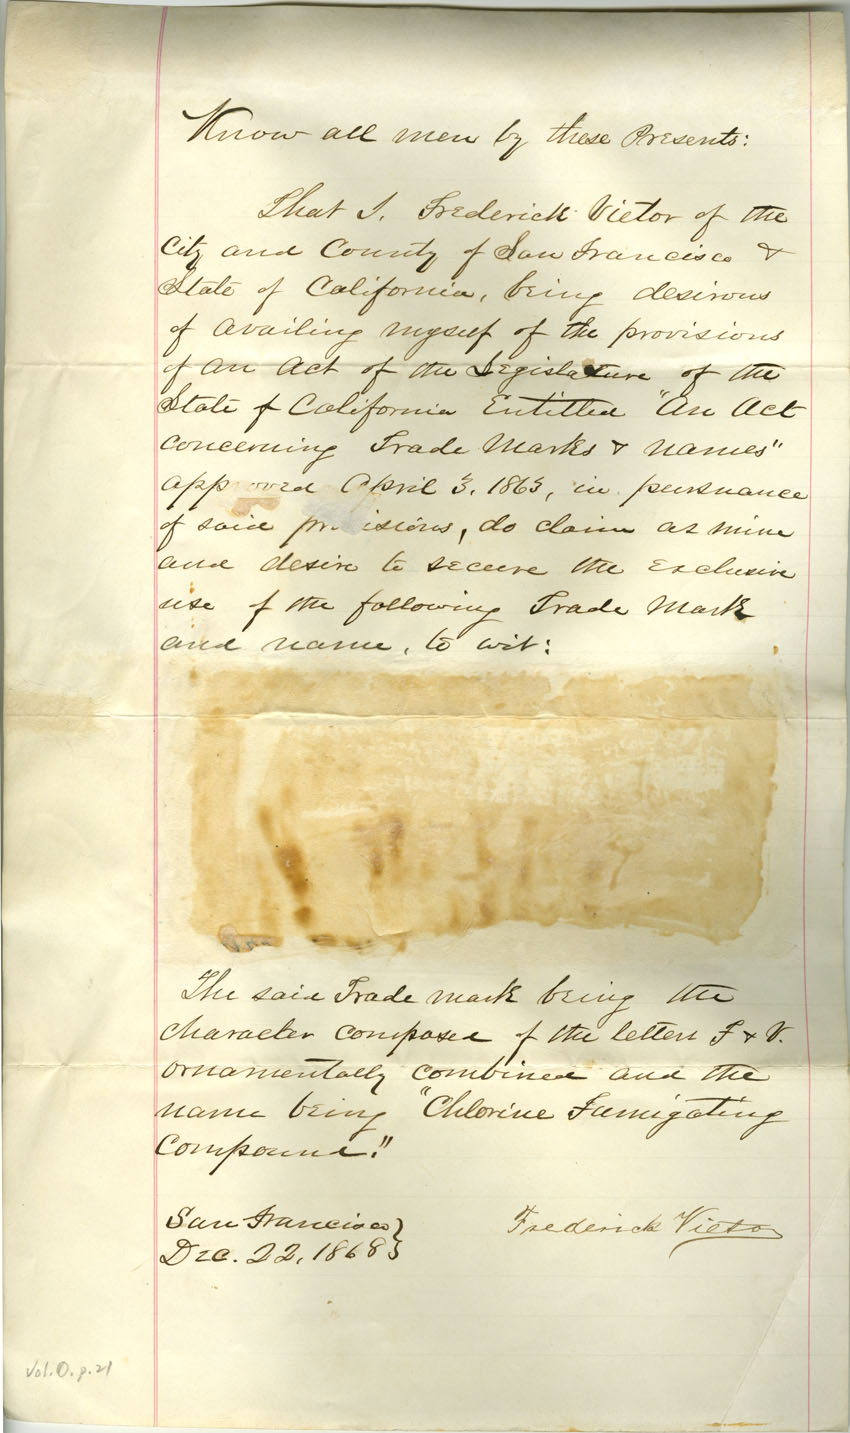 Know all men by these Presents:
That I. Frederick Victor of the
City and County of San Francisco &
State of California, being desirous
of availing myself of the provisions
of an Act of the Legislature of the
State of California Entitled "An Act
concerning Trade Marks & names"
approved April 3, 1863, in pursuance
of said provisions, do claim as mine
and desire to secure the exclusive
use of the following Trade Mark
and name, to wit:
The said Trade mark being the
character composed of the letters F & V.
ornamentally combined and the
name being "Chlorine Fumigating
Compound."
San Francisco }
Dec. 22, 1868 }
Frederick Victor
Vol. O. p. 21